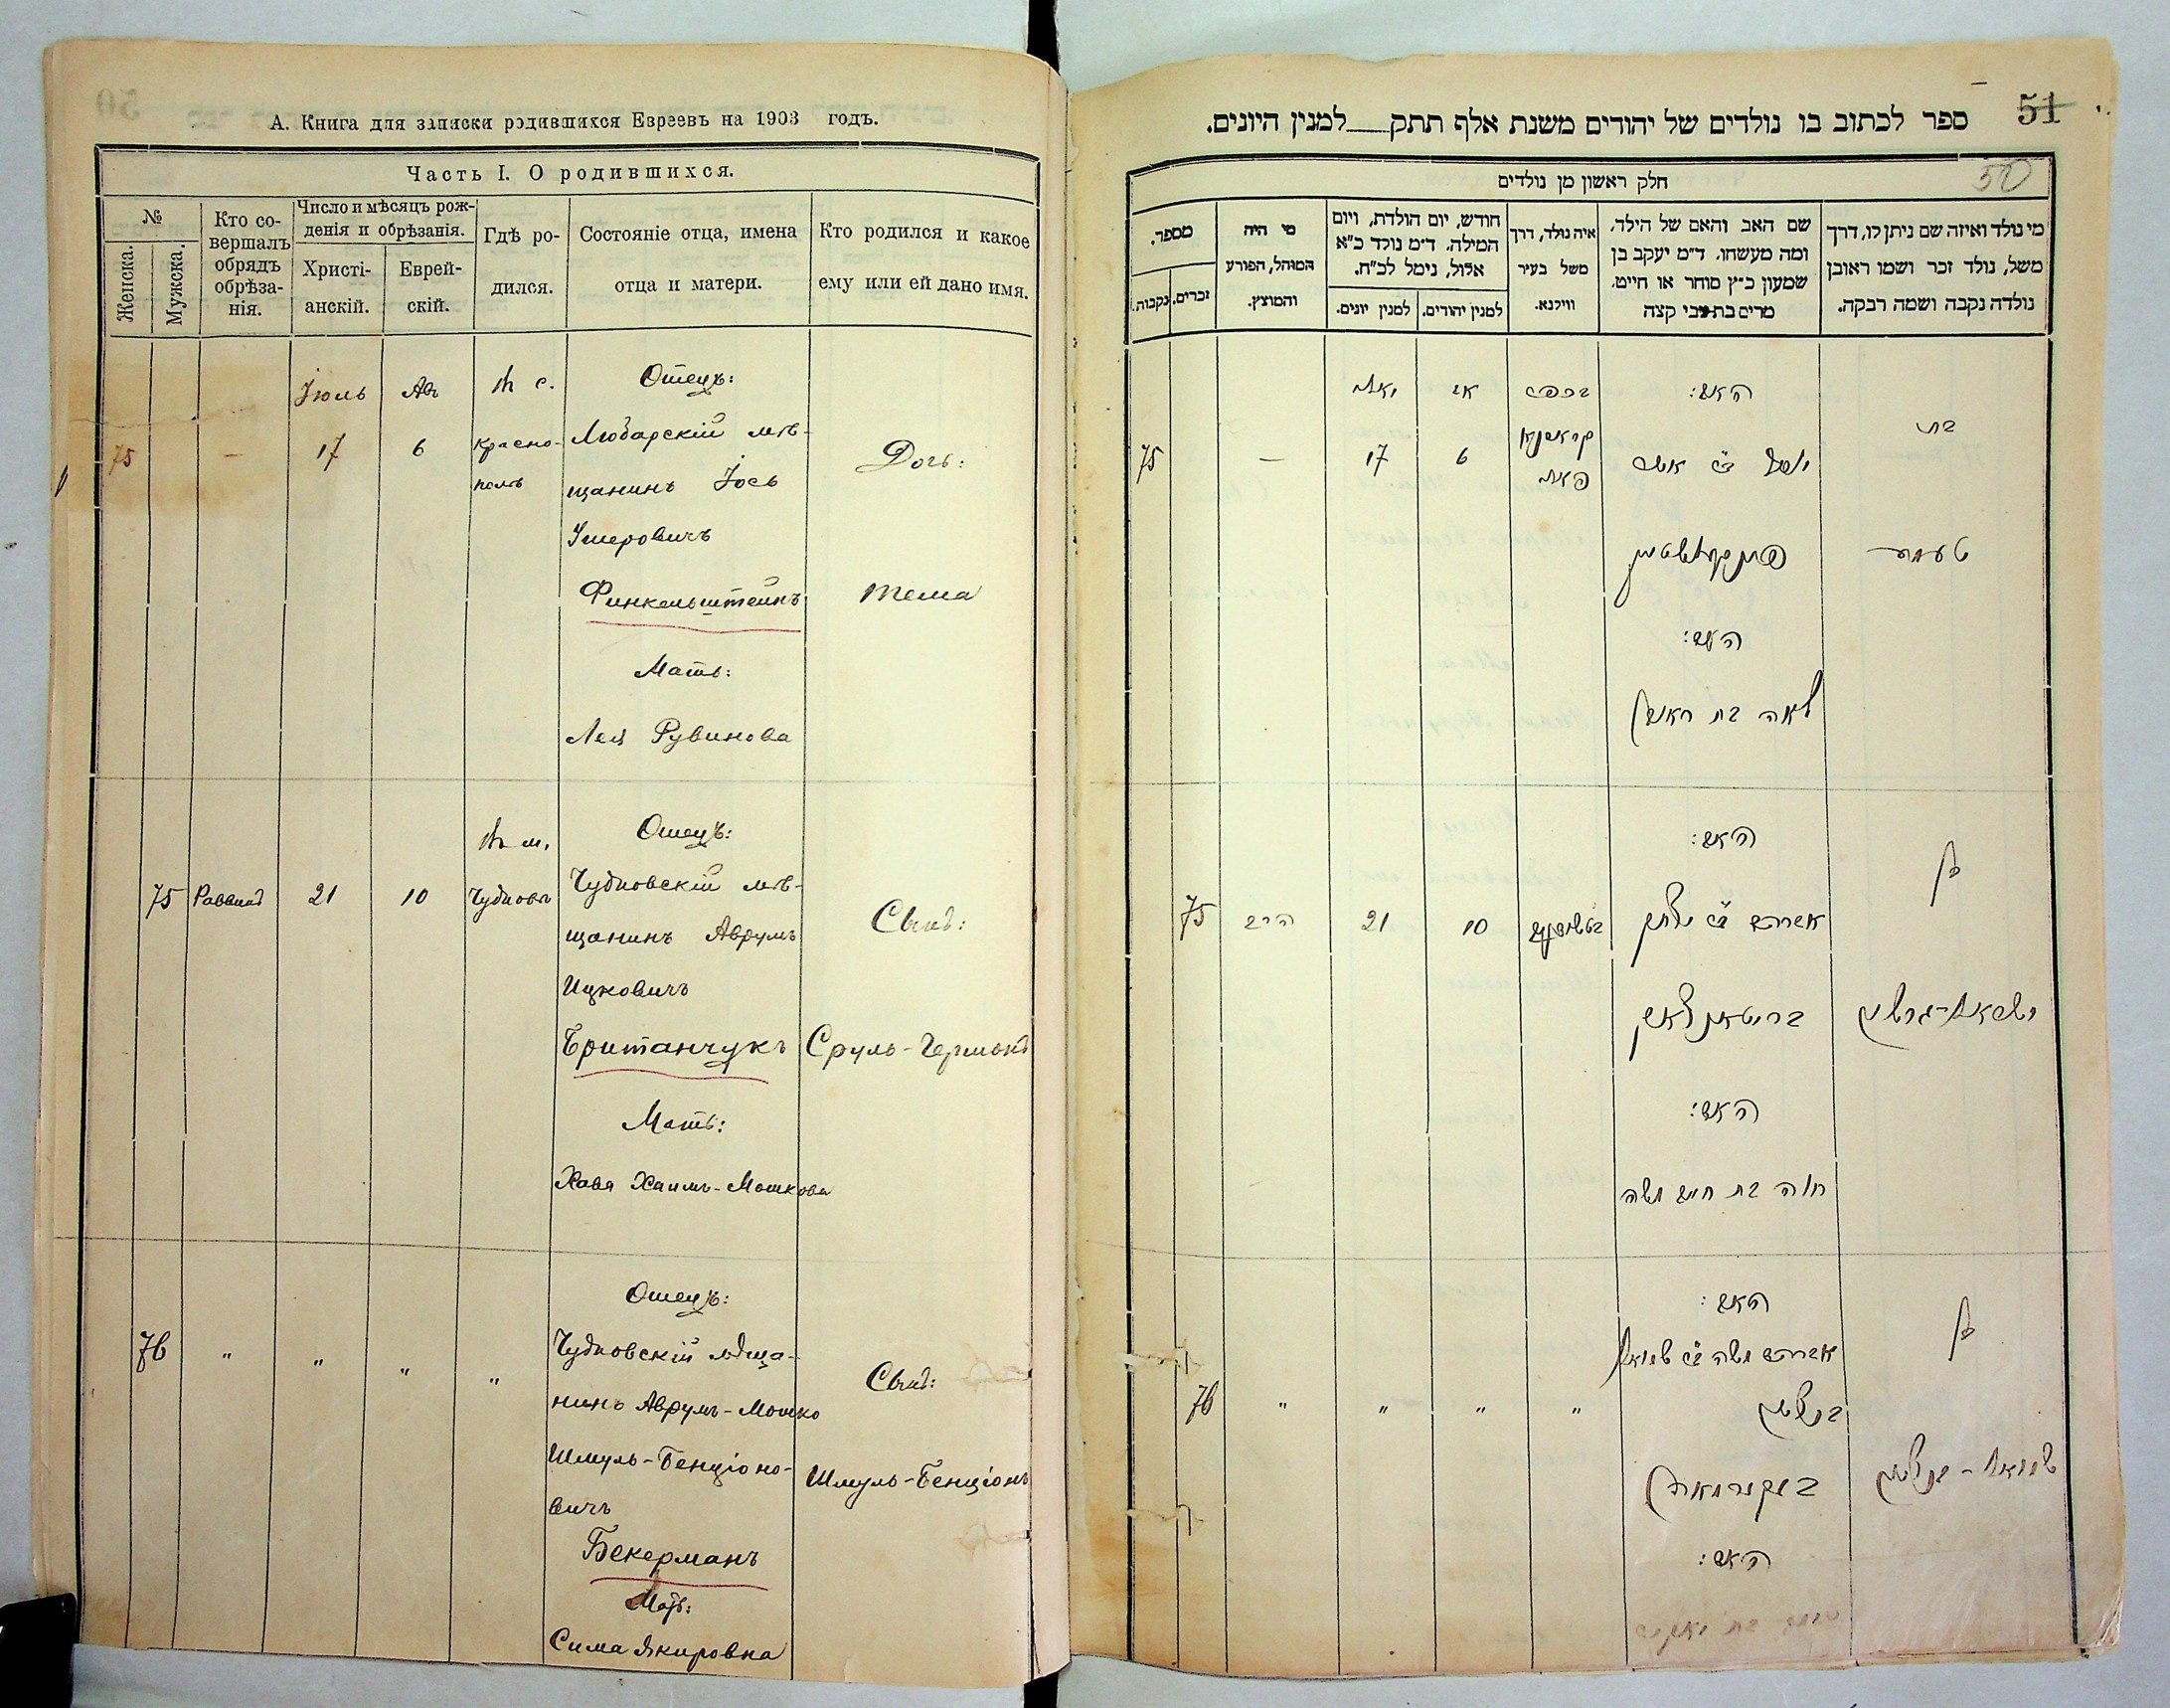 А. Книга для записки родившихся Евреевъ на 1903 годъ.
Часть I. О родившихся.
№
Женска.
Мужска.
Кто со-
вершалъ
обрядъ
обрѣза-
нія.
Число и мѣсяцъ рож-
денія и обрѣзанія.
Христі-
анскій.
Еврей-
скій.
Гдѣ ро-
дился.
Состояніе отца, имена
отца и матери.
Кто родился и какое
ему или ей дано имя.
75
—
Іюль
17
Авъ
6
Въ с.
Красно-
полѣ
Отецъ:
Любарскій мѣ-
щанинъ Іось
Умеровичъ
Финкельштейнъ
Мать:
Лея Рувинова
Дочь:
Тема
75
Раввинъ
21
10
Въ м.
Чудновѣ
Отецъ:
Чудновскій мѣ-
щанинъ Аврумъ
Ицковичъ
Британчукъ
Мать:
Хава Хаимъ-Мошкова
Сынъ:
Сруль-Гершонъ
76
"
"
"
"
Отецъ:
Чудновскій мѣща-
нинъ Аврумъ-Мошко
Шмуль-Бенціоно-
вичъ
Бекерманъ
Мать:
Сима Якировна
Сынъ:
Шмуль-Бенціонъ
51
ספר לכתוב בו נולדים של יהודים משנת אלף תתק למנין היונים.
50
חלק ראשון מן נולדים
מי נולד ואיזה שם ניתן לו, דרך
משל, נולד זכר ושמו ראובן
נולדה נקבה ושמה רבקה.
שם האב והאם של הילד,
ומה מעשהו. ד"מ יעקב בן
שמעון כ"ץ סוחר או חייט.
מרים בת צבי קצה
איה נולד, דרך
משל בעיר
ווילנא.
חודש, יום הולדת, ויום
המילה. ד"מ נולד כ"א
אלול, נימל לכ"ח.
למנין יהודים.
למנין יונים.
מי היה
המוהל, הפורע
והמוצץ.
מספר.
זכרים.
נקבות.
בת
האב:
אב
6
17
—
75
פינקעלשטיין
האם:
לאה בת ראובן
בן
האב:
אברהם ב"ר יצחק
10
21
הרב
75
האם:
חוה בת חיים משה
בן
האב:
אברהם משה ב"ר שמואל
בנציון
בעקערמאן
שמואל-בנציון
"
"
"
"
76
האם: